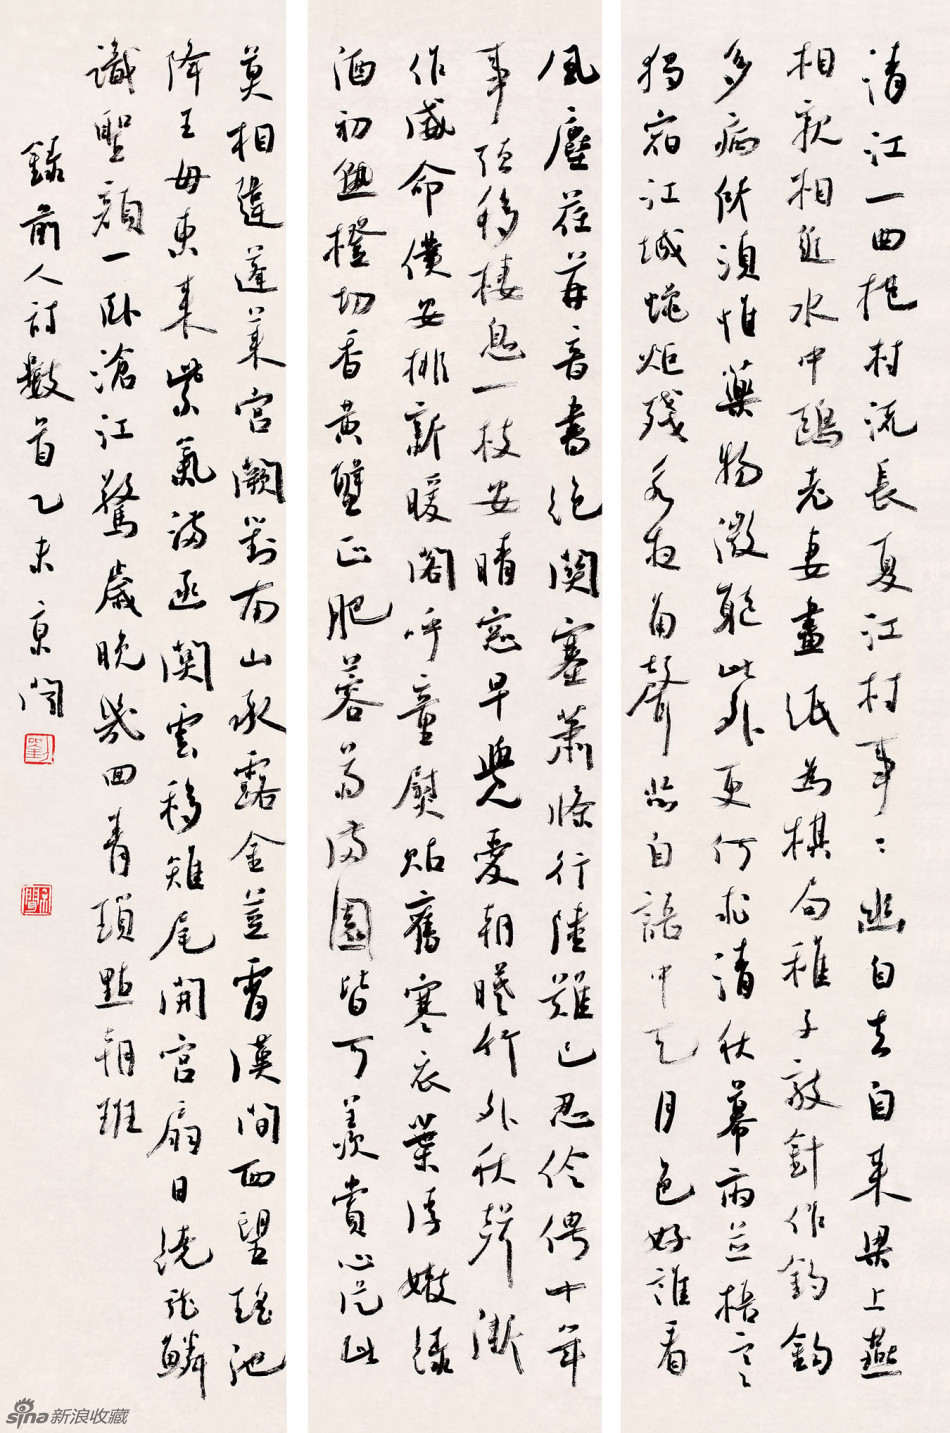 清江一曲抱村流長夏江村事〻幽自去自来梁上燕
相親相近水中鷗老妻畫紙為棋局稚子敲針作釣鈎
多病所須惟藥物微軀此外更何求清秋幕府井梧寒
獨宿江城蠟炬殘永夜角聲悲自語中天月色好誰看
風塵荏苒音書絕關塞蕭條行路難已忍伶俜十年
事强移棲息一枝安晴窓早覺愛朝曦竹外秋聲漸
作威命僕安排新暖閣呼童熨貼舊寒衣葉浮嫩綠
酒初熟橙切香黃蟹正肥蓉菊滿園皆可羨賞心從此
莫相違蓬萊宮闕對南山承露金莖霄漢間西望瑤池
降王母東来紫氣滿函關雲移雉尾開宮扇日繞龍鱗
識聖顏一卧滄江驚歲晚幾回青瑣點朝班
錄前人詩數首乙未京聞
劉
sina新浪收藏